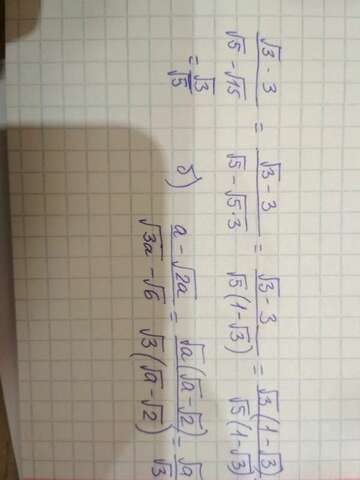 (√3 - 3)/(√5 - √15) = (√3 - 3)/(√5 - √5·3) = (√3 - 3)/(√5(1-√3)) = (√3(1-√3))/(√5(1-√3))
= √3/√5
б) (a - √2a)/(√3a - √6) = (√a(√a - √2))/(√3(√a - √2)) = √a/√3